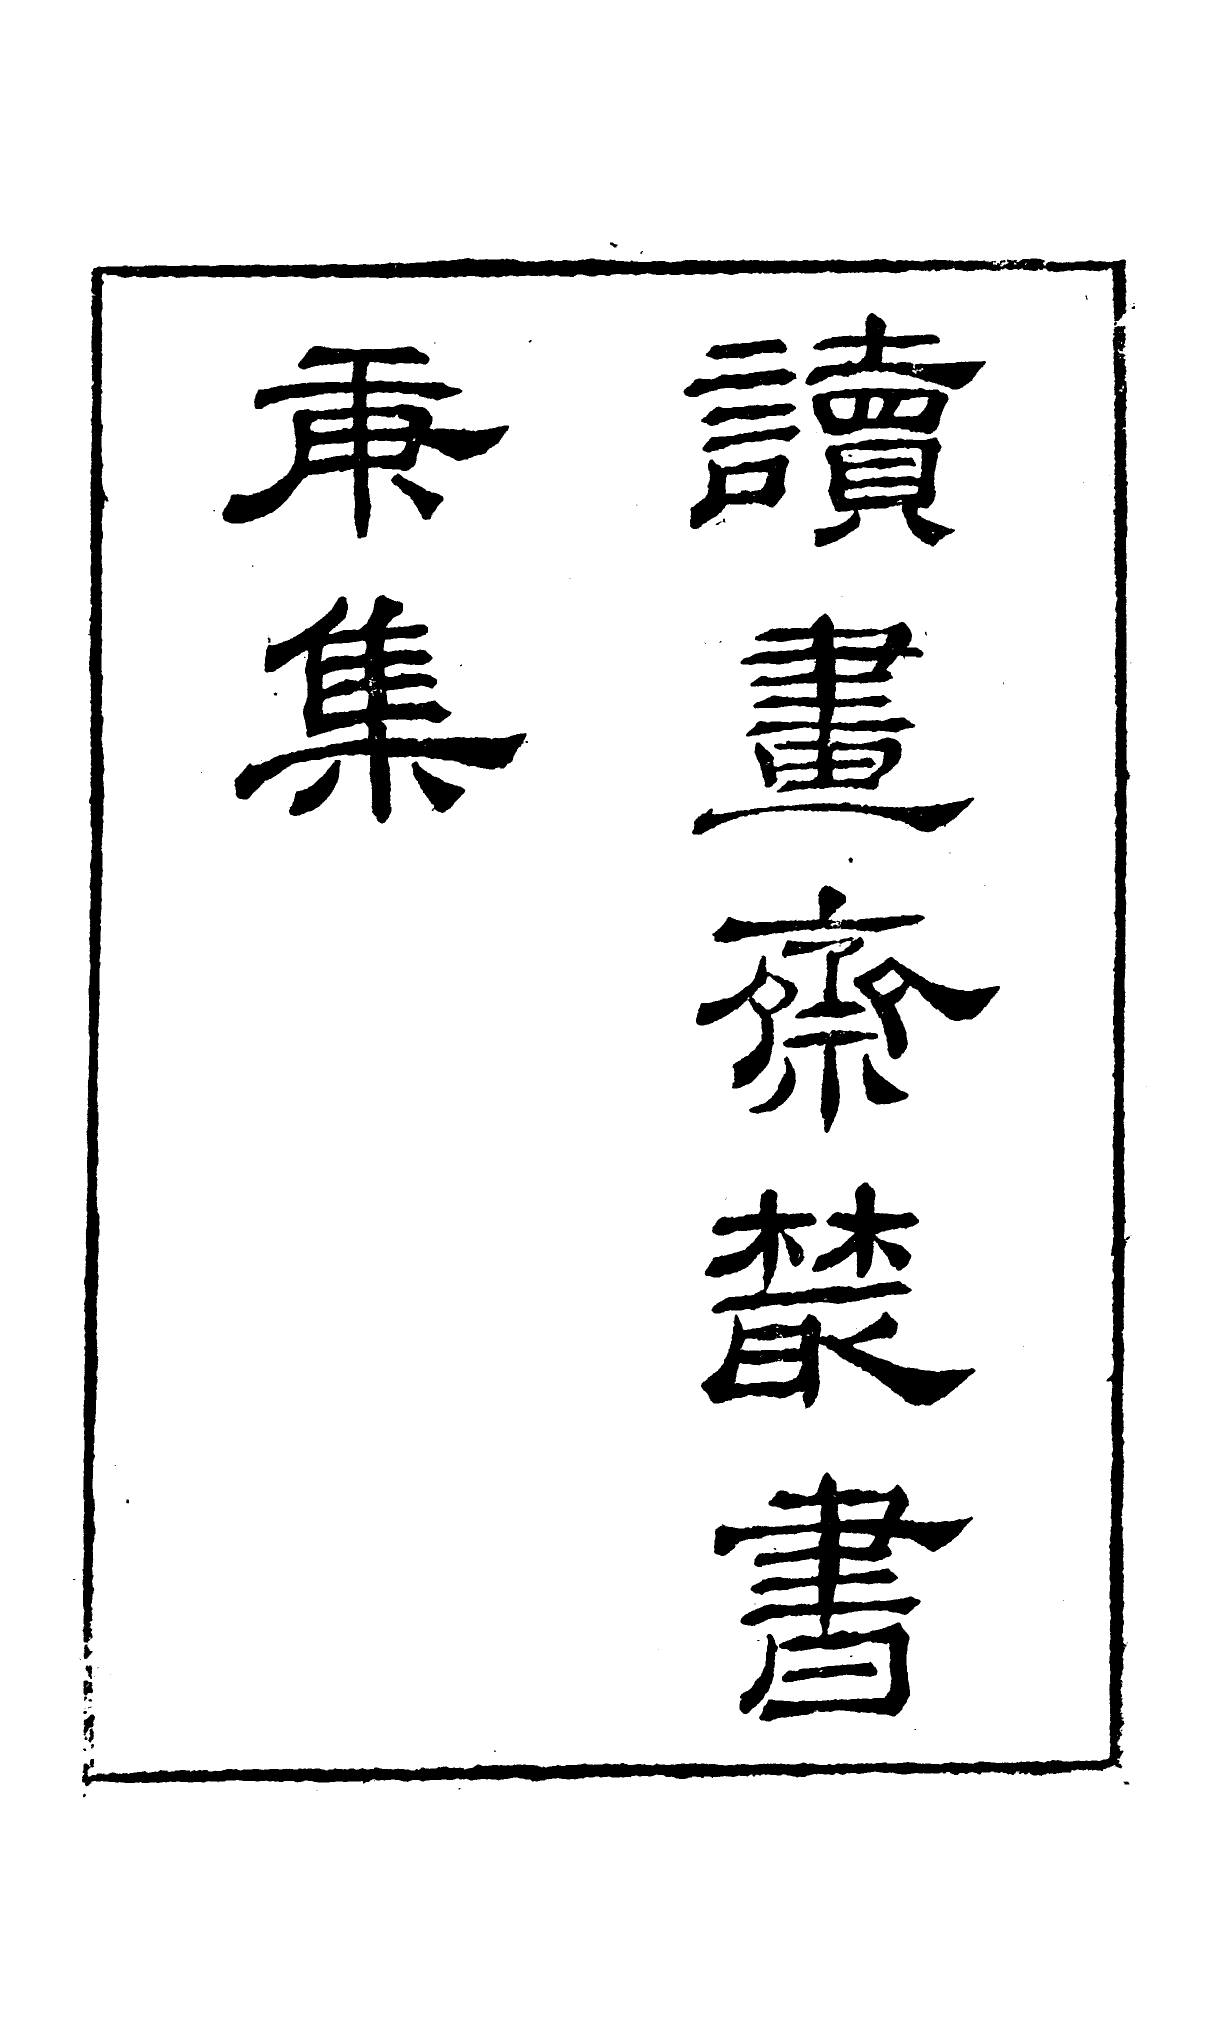 讀畫齋叢書
庚集